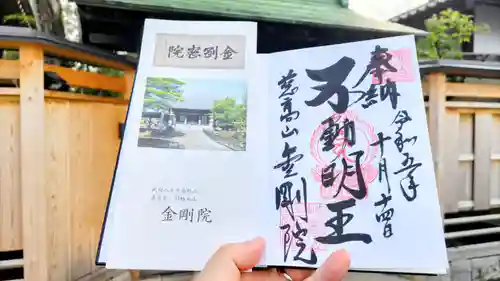 院密剛金
金剛院
奉納
不動明王
慈高山金剛院
令和五年
十月十四日